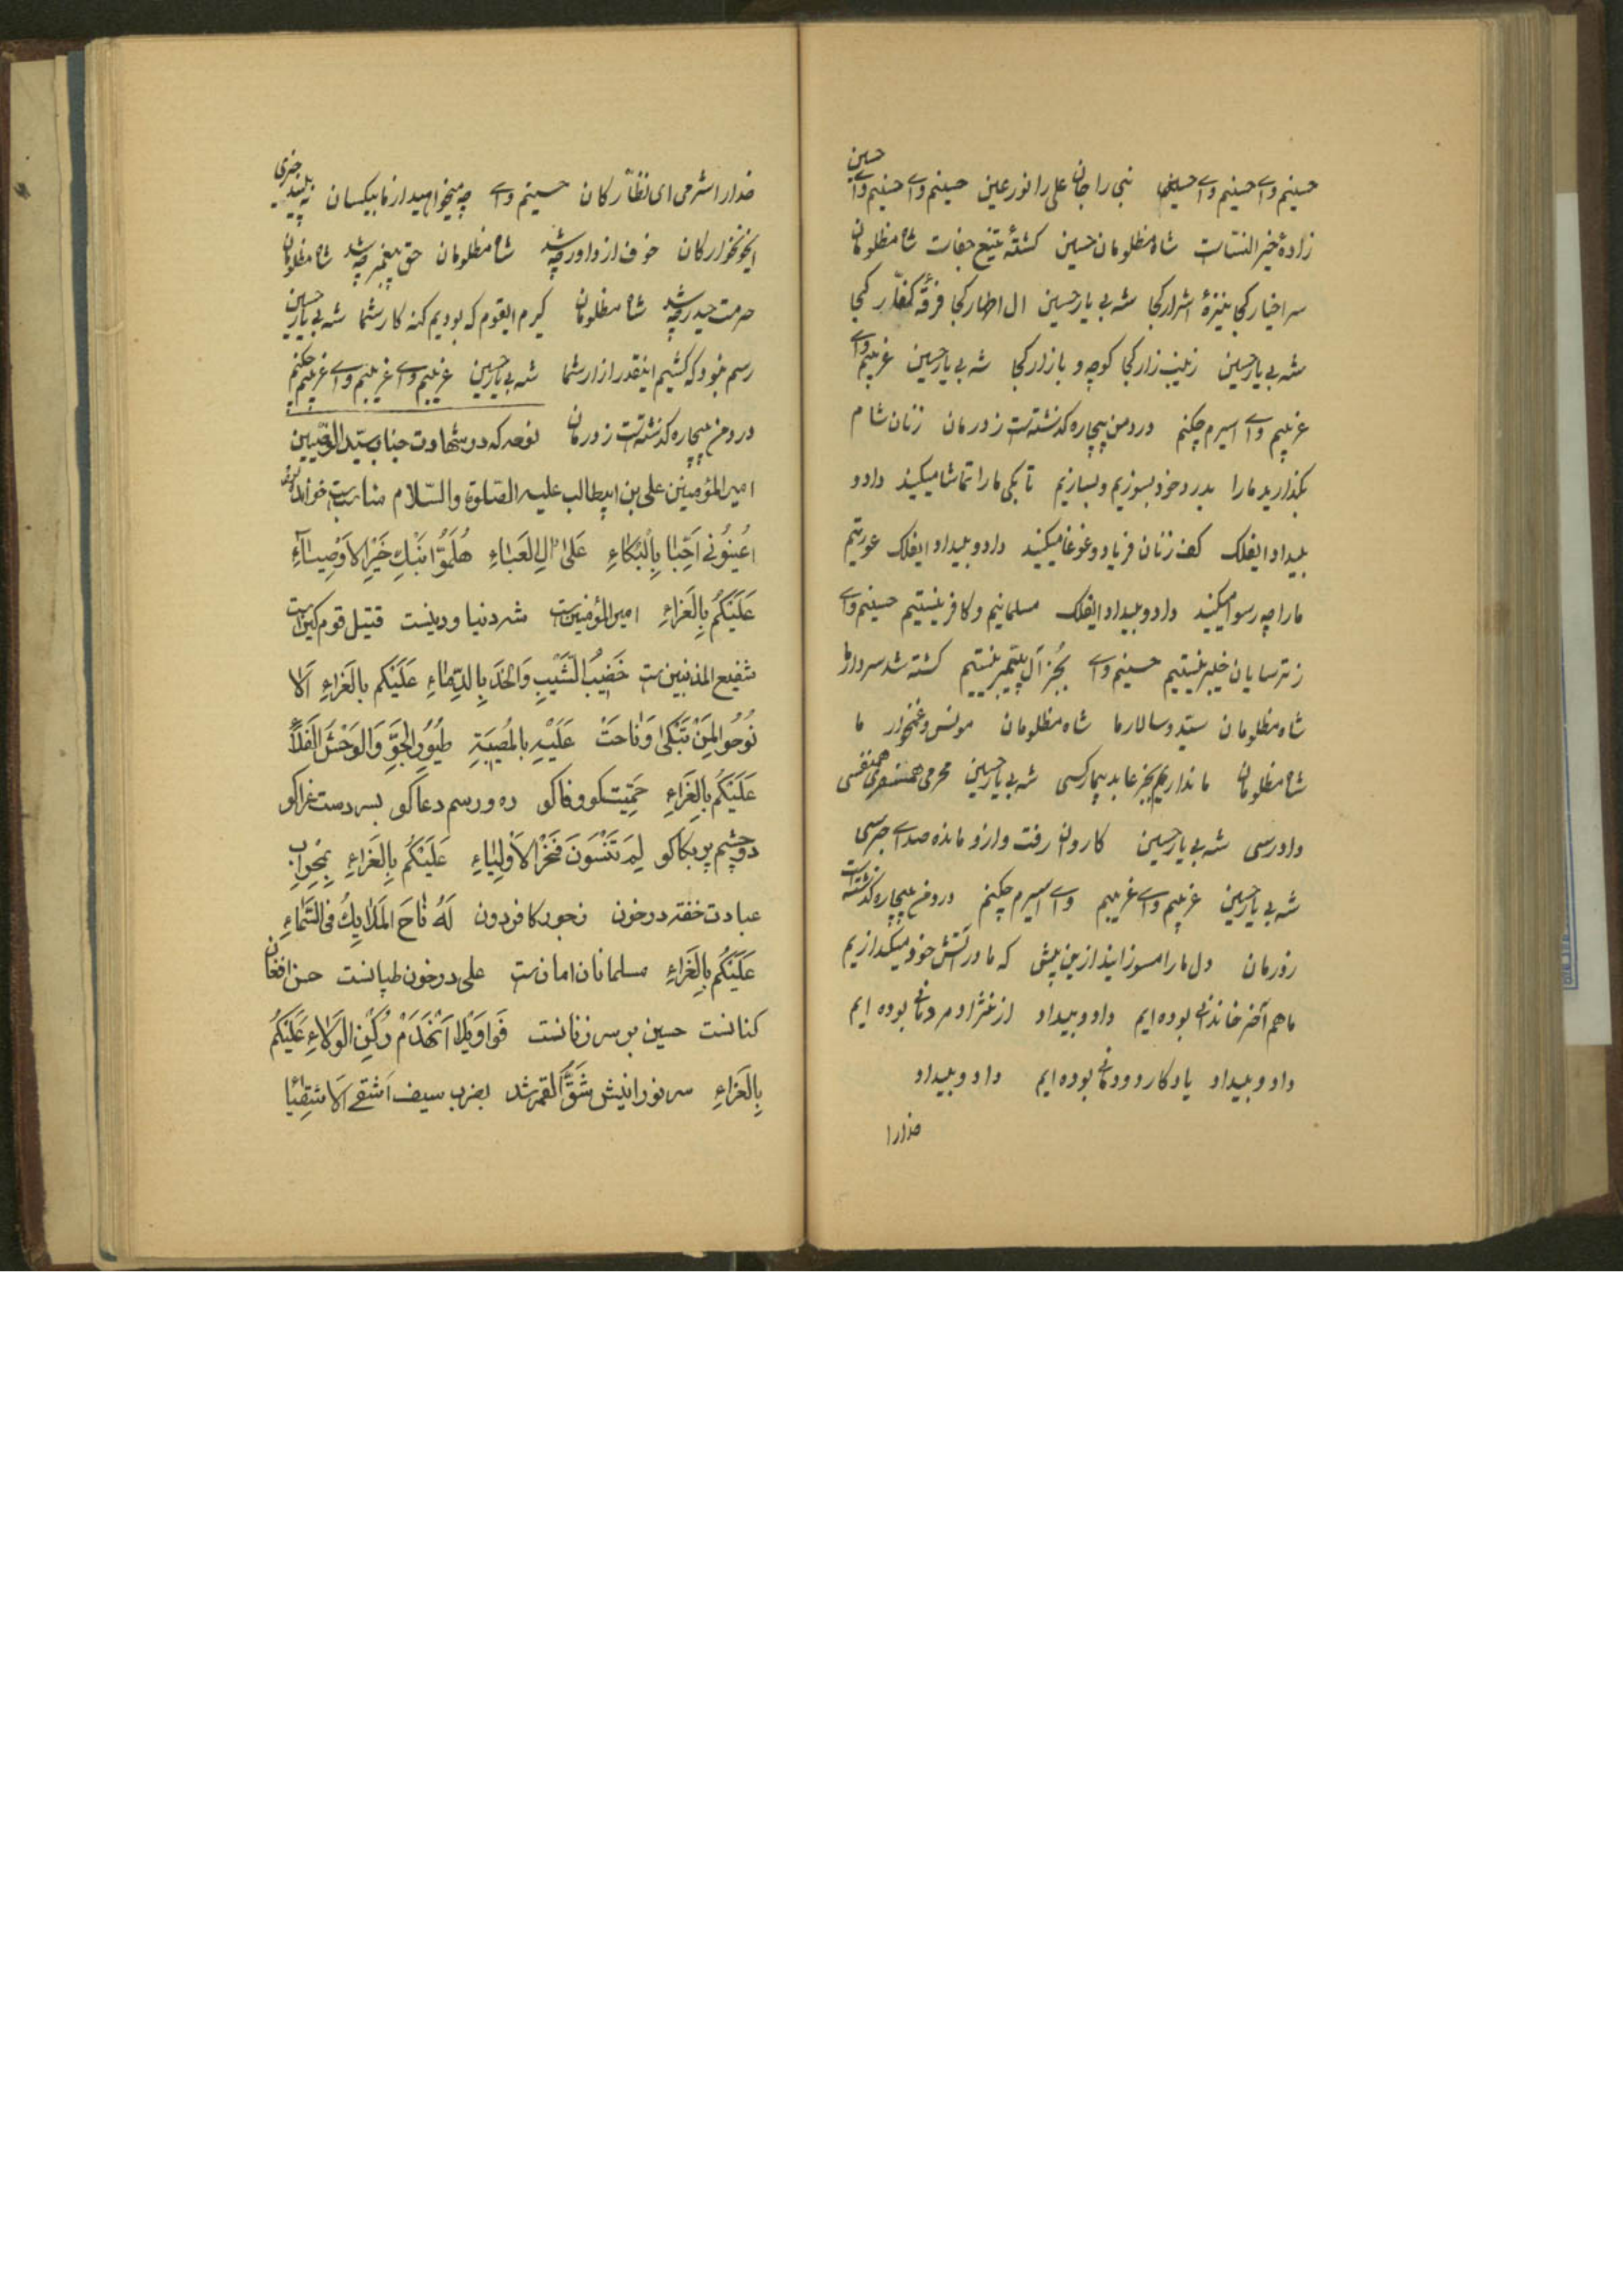 حسینم وای حسینم وای حسینم نبی را جان علی را نور عین حسینم وای حسینم وای حسین
زادهٔ خیر النساست شاه مظلومان حسین کشتهٔ تیغ جفات شاه مظلومان
سر اخیار کجا نیزهٔ اشرار کجا شه بی یار حسین ال اطهار کجا فرقهٔ کفار کجا
شه بی یار حسین زینب زار کجا کوچه و بازار کجا شه بی یار حسین غریبم وای
غریبم وای اسیرم چکنم درد من بیچاره گذشتست ز درمان زنان شام
بگذارید مارا بدرد خود بسوزیم و بسازیم تا بکی مارا تماشا میکنید داد و
بیداد ایفلک کف زنان فریاد و غوغا میکنید داد و بیداد ایفلک عورتیم
مارا چه رسوا میکنید داد و بیداد ایفلک مسلمانیم و کافر نیستیم حسینم وای
ز ترسایان خیبر نیستیم حسینم وای بجز آل پیمبر نیستیم کشته شد سردار ما
شاه مظلومان سید و سالار ما شاه مظلومان مونس و غمخوار ما
شاه مظلومان ما نداریم بجز عابد بیمار کسی شه بی یار حسین محرمی همنفسی
دادرسی شه بی یار حسین کاروان رفت و ازو مانده صدای جرسی
شه بی یار حسین غریبم وای غریبم وای اسیرم چکنم درد من بیچاره گذشتست
ز درمان دل مارا مسوزانید ازین بیش که ما در آتش خود میگدازیم
ما هم آخر خاندانی بوده ایم داد و بیداد از نژاد مردمانی بوده ایم
داد و بیداد یادگار دودمانی بوده ایم داد و بیداد
خدارا
خدارا شرمی ای نظارگان حسینم وای چه میخواهید از ما بیکسان
ایخونخوارگان خوف از داور چه شد شاه مظلومان حق پیغمبر چه شد شاه مظلومان
حرمت حیدر چه شد شاه مظلومان گیرم ایقوم که بودیم گنه کار شما شه بی یار حسین
رسم نبود که کشیم اینقدر ازار شما شه بی یار حسین غریبم وای غریبم وای غریبم چکنم
درد من بیچاره گذشتست ز درمان نوحه که در شهادت جناب سید الوصیین
امیر المؤمنین علی بن ابیطالب علیه الصلوة والسلام مناسبست خواندن
اعینونی احبا بالبکاء علی ال العباء هلموا نبک خیر الاوصیاء
علیکم بالعزاء امیر المؤمنین است شه دنیا و دینست قتیل قوم کین است
شفیع المذنبین ست خضیب الشیب والخد بالدماء علیکم بالعزاء الا
نوحوا لمن تبکی وناحت علیه بالمصیبة طیور الجو والوحش الفلا
علیکم بالعزاء حمیت کو وفا کو ره و رسم دعا کو بسر دست عزا کو
دو چشم پر بکا کو لم تنسون فخر الاولیاء علیکم بالعزاء بمحراب
عبادت خفته در خون ز جور کافر دون له ناح الملایک فی السماء
علیکم بالعزاء مسلمانان امان ست علی در خون طپانست حسن افغان
کنانست حسین بر سر زنانست فواویلا انهدم رکن الولاء علیکم
بالعزاء سر نورانیش شق القمر شد بضرب سیف اشقی الاشقیا